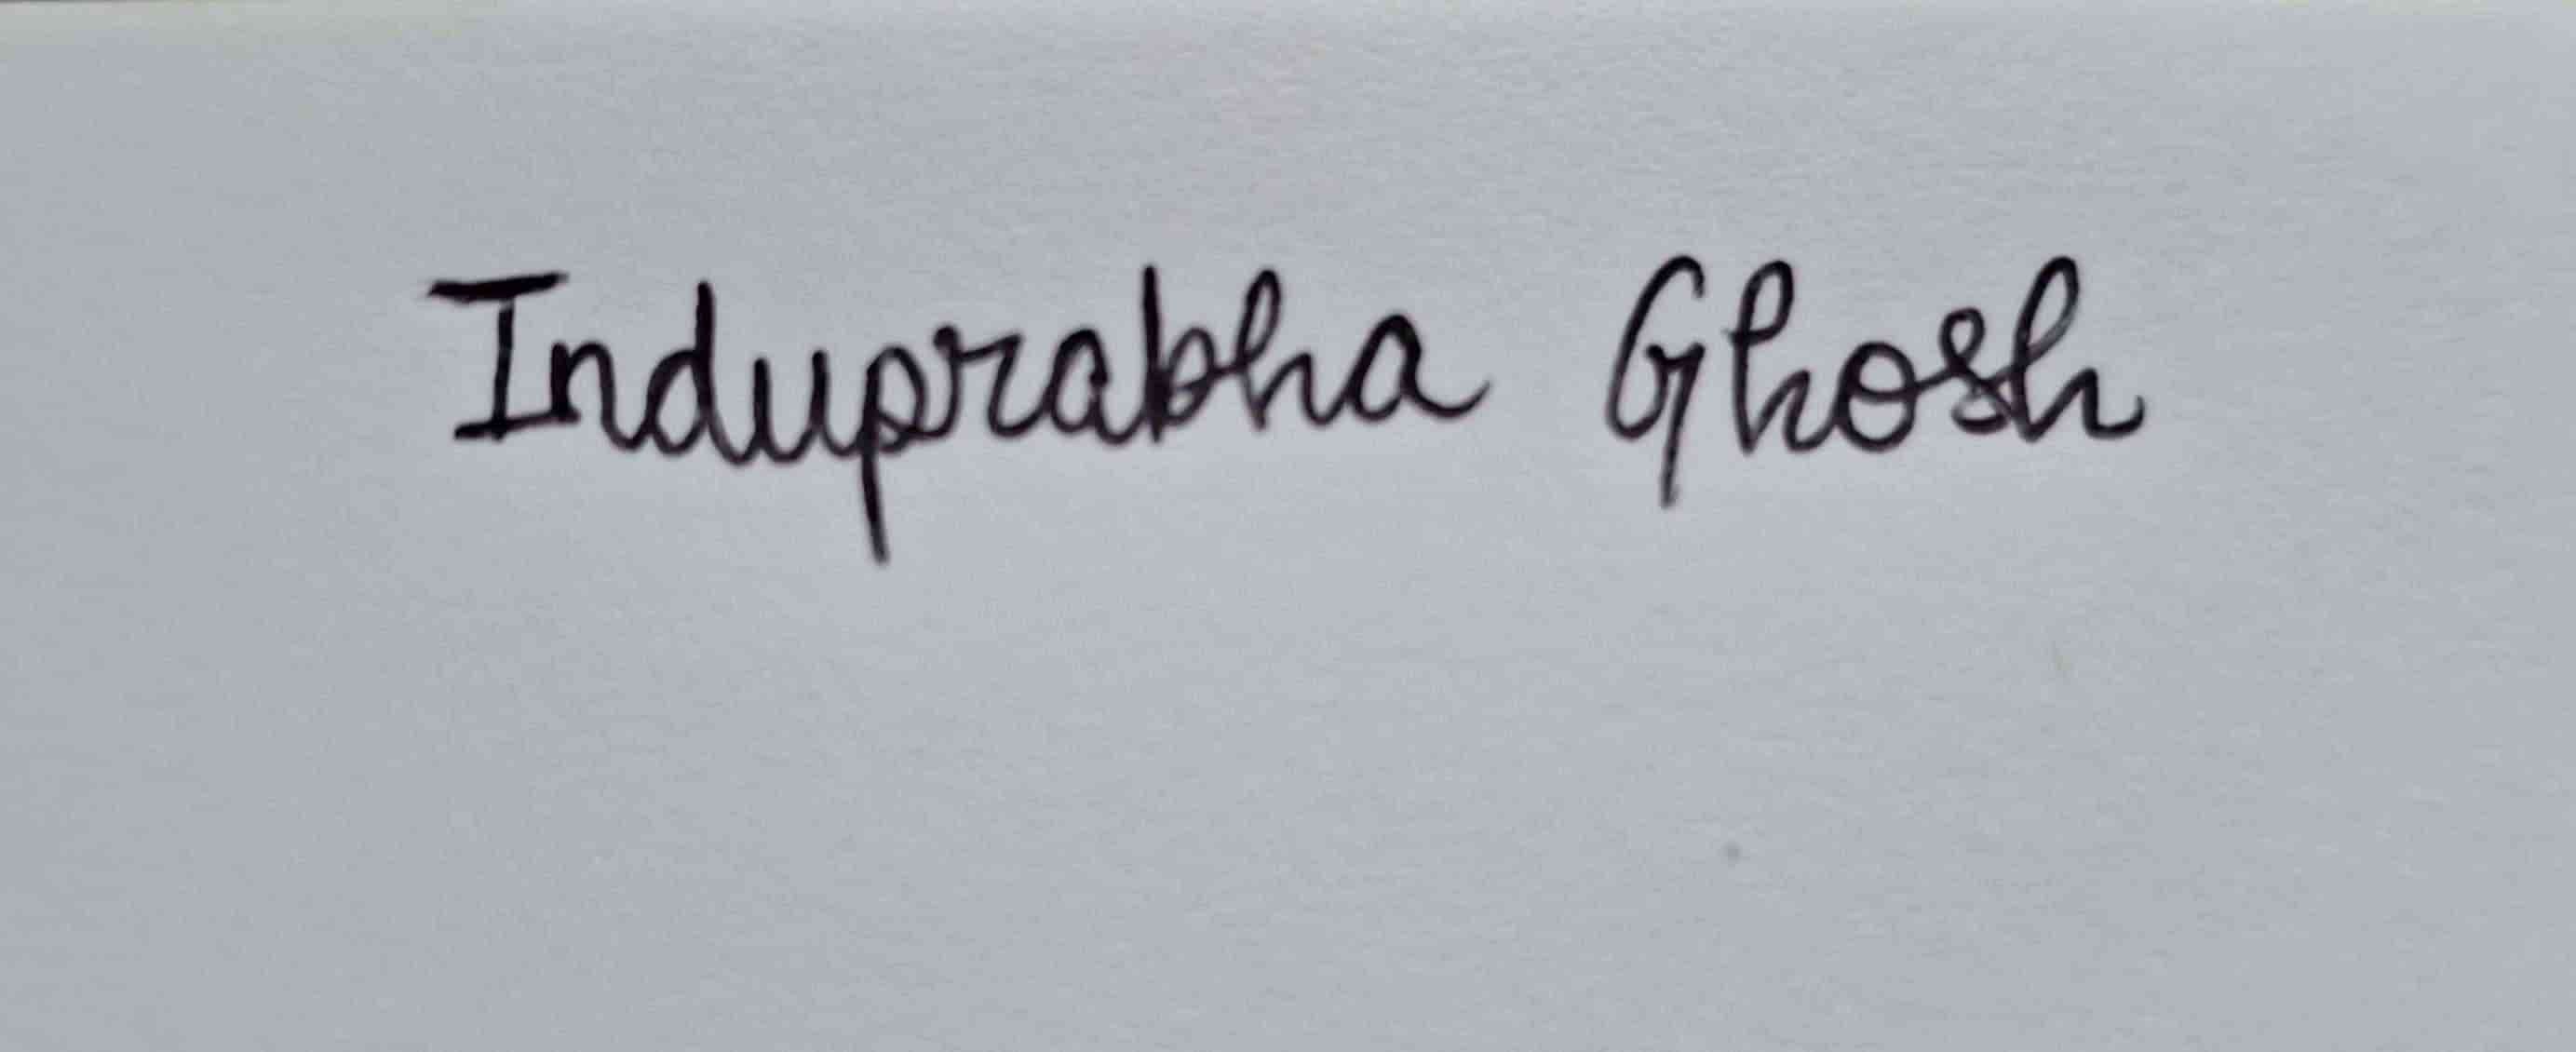 Induprabha Ghosh